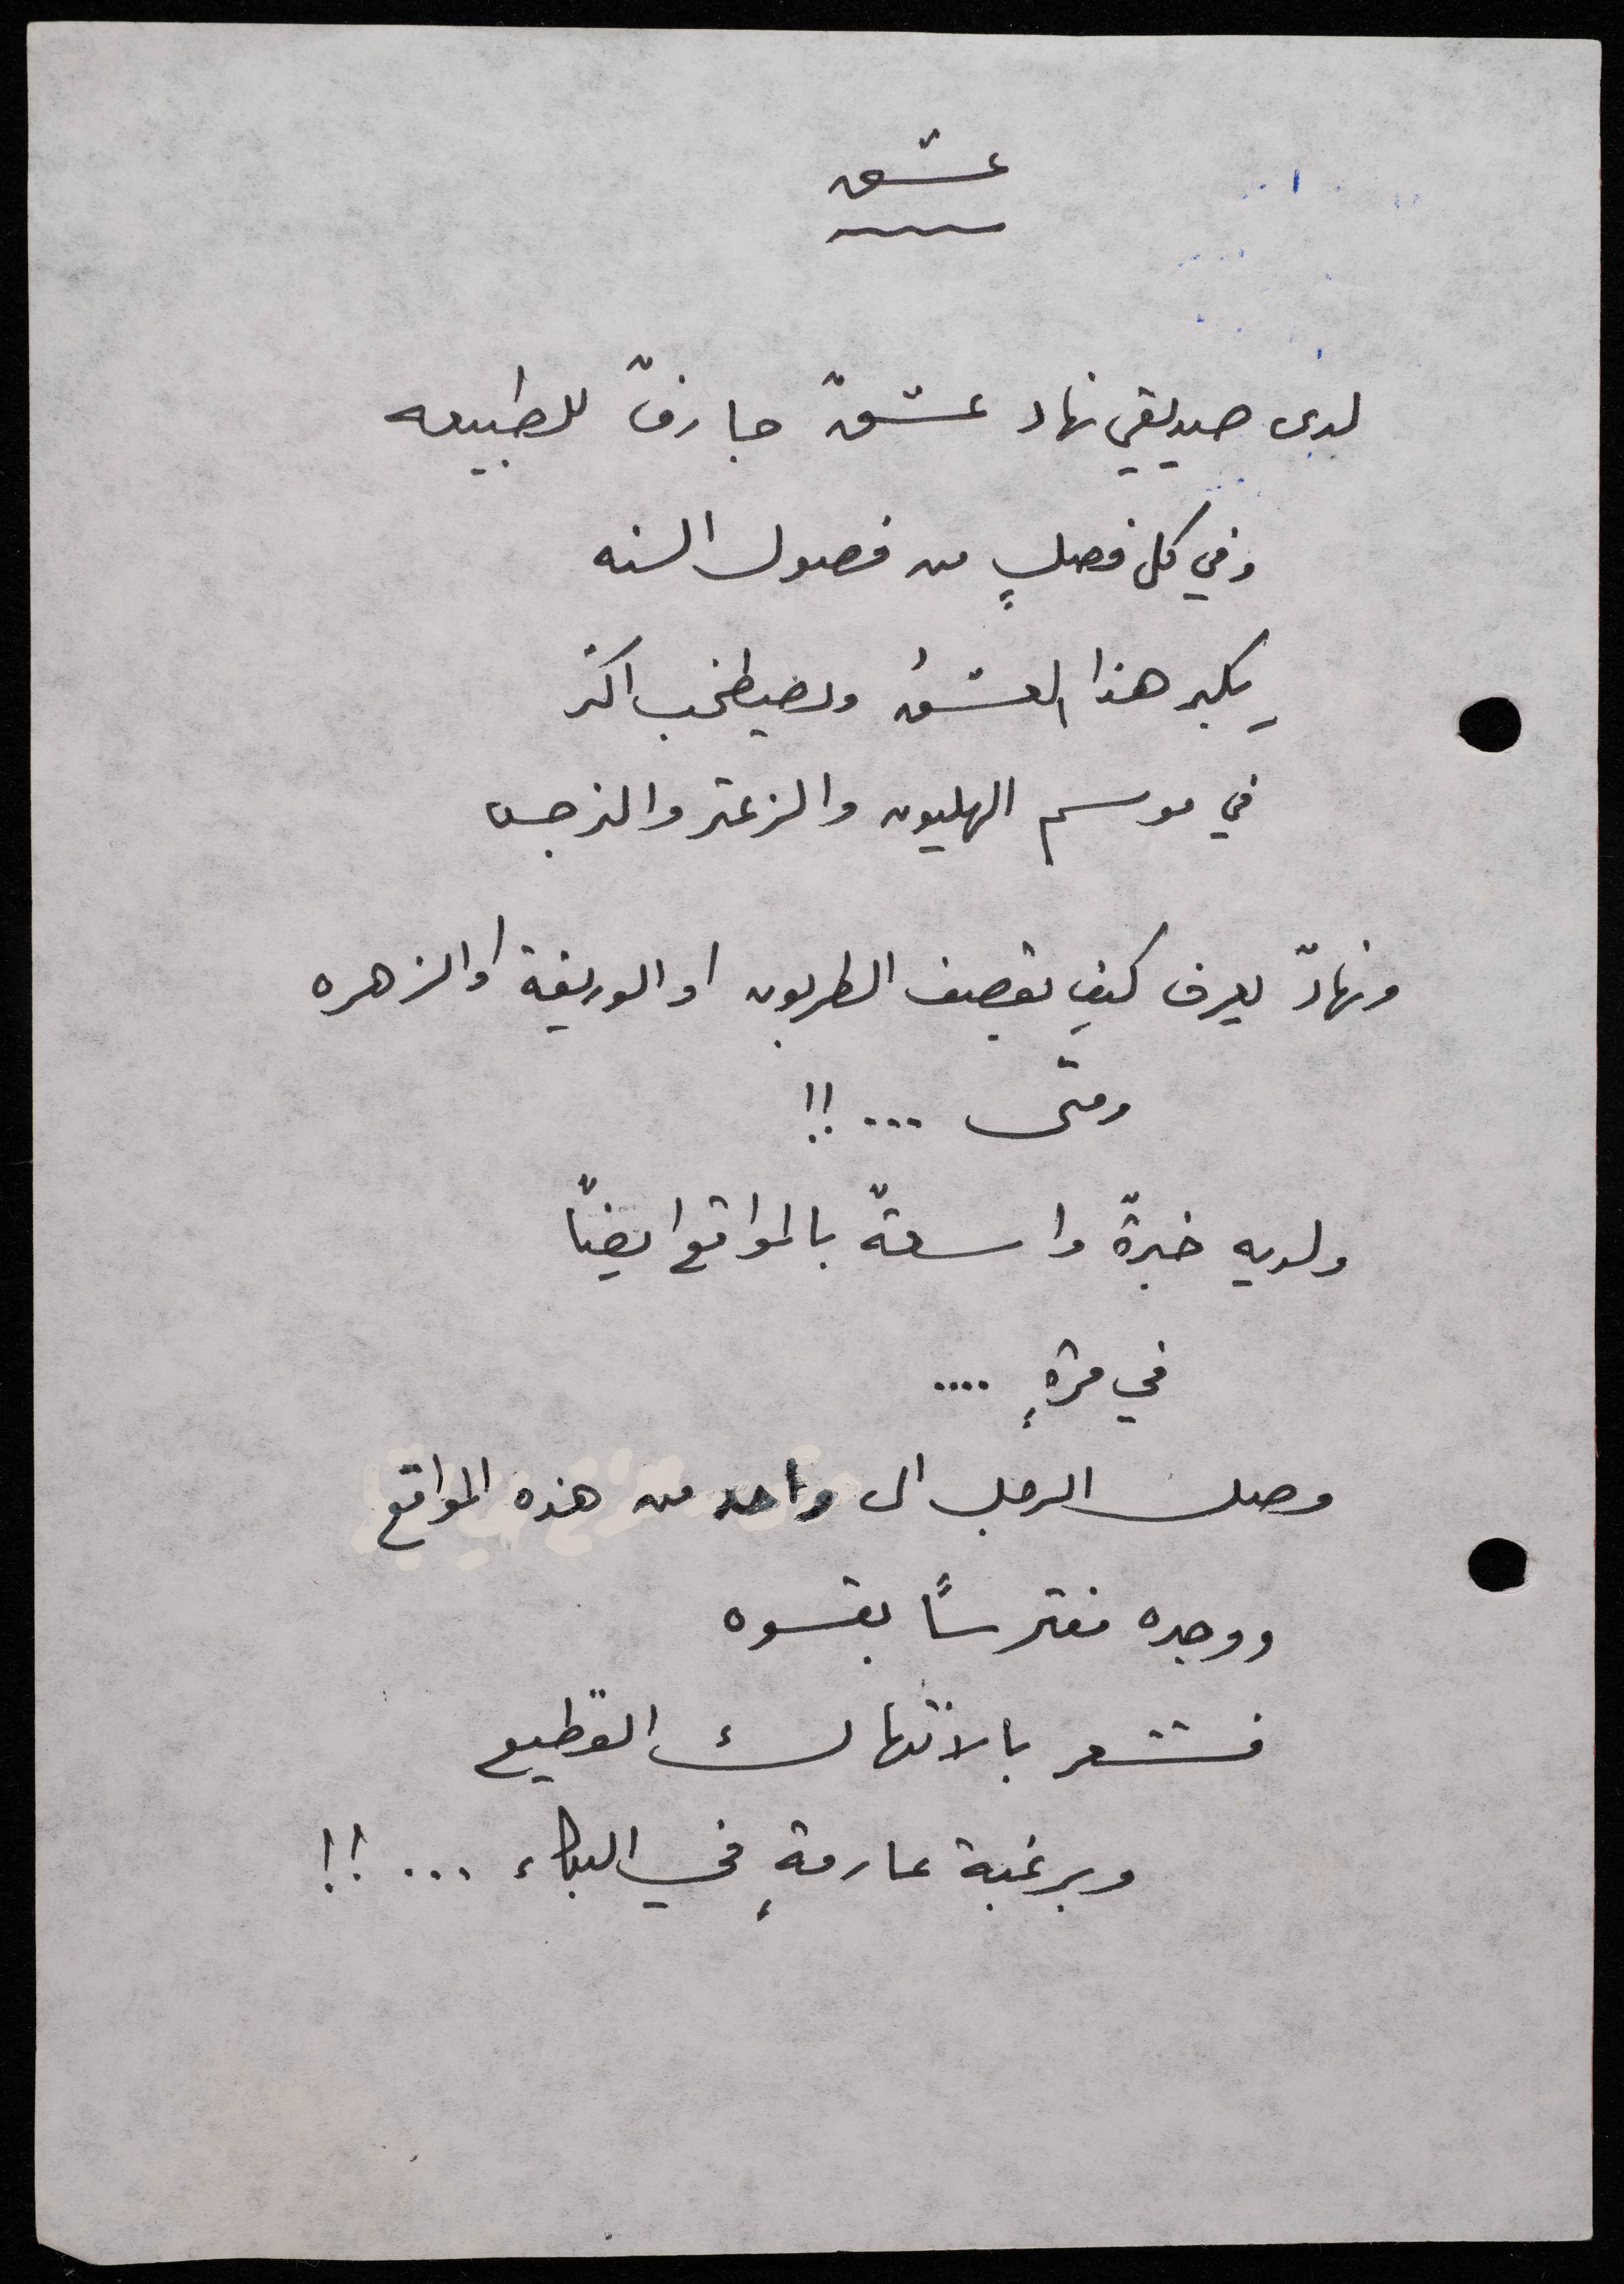 عشق
لدى صديقي نهاد عشقٌ جارفٌ للطبيعه
وفي كل فصلٍ من فصول السنه
يكبر هذا العشقُ ويصطخب اكثر
في موسم الهليون والزعتر والنرجس
ونهادٌ يعرف كيف يقصف الطربون او الوريقة او الزهره
ومتى ... !!
ولديه خبرةٌ واسعةٌ بالمواقع ايضًا
في مرةٍ ....
وصل الرجل الى واحد من هذه المواقع
ووجده مفترسًا بقسوه
فشعر بالانتهاك الفظيع
وبرغبة عارمةٍ في البكاء ... !!